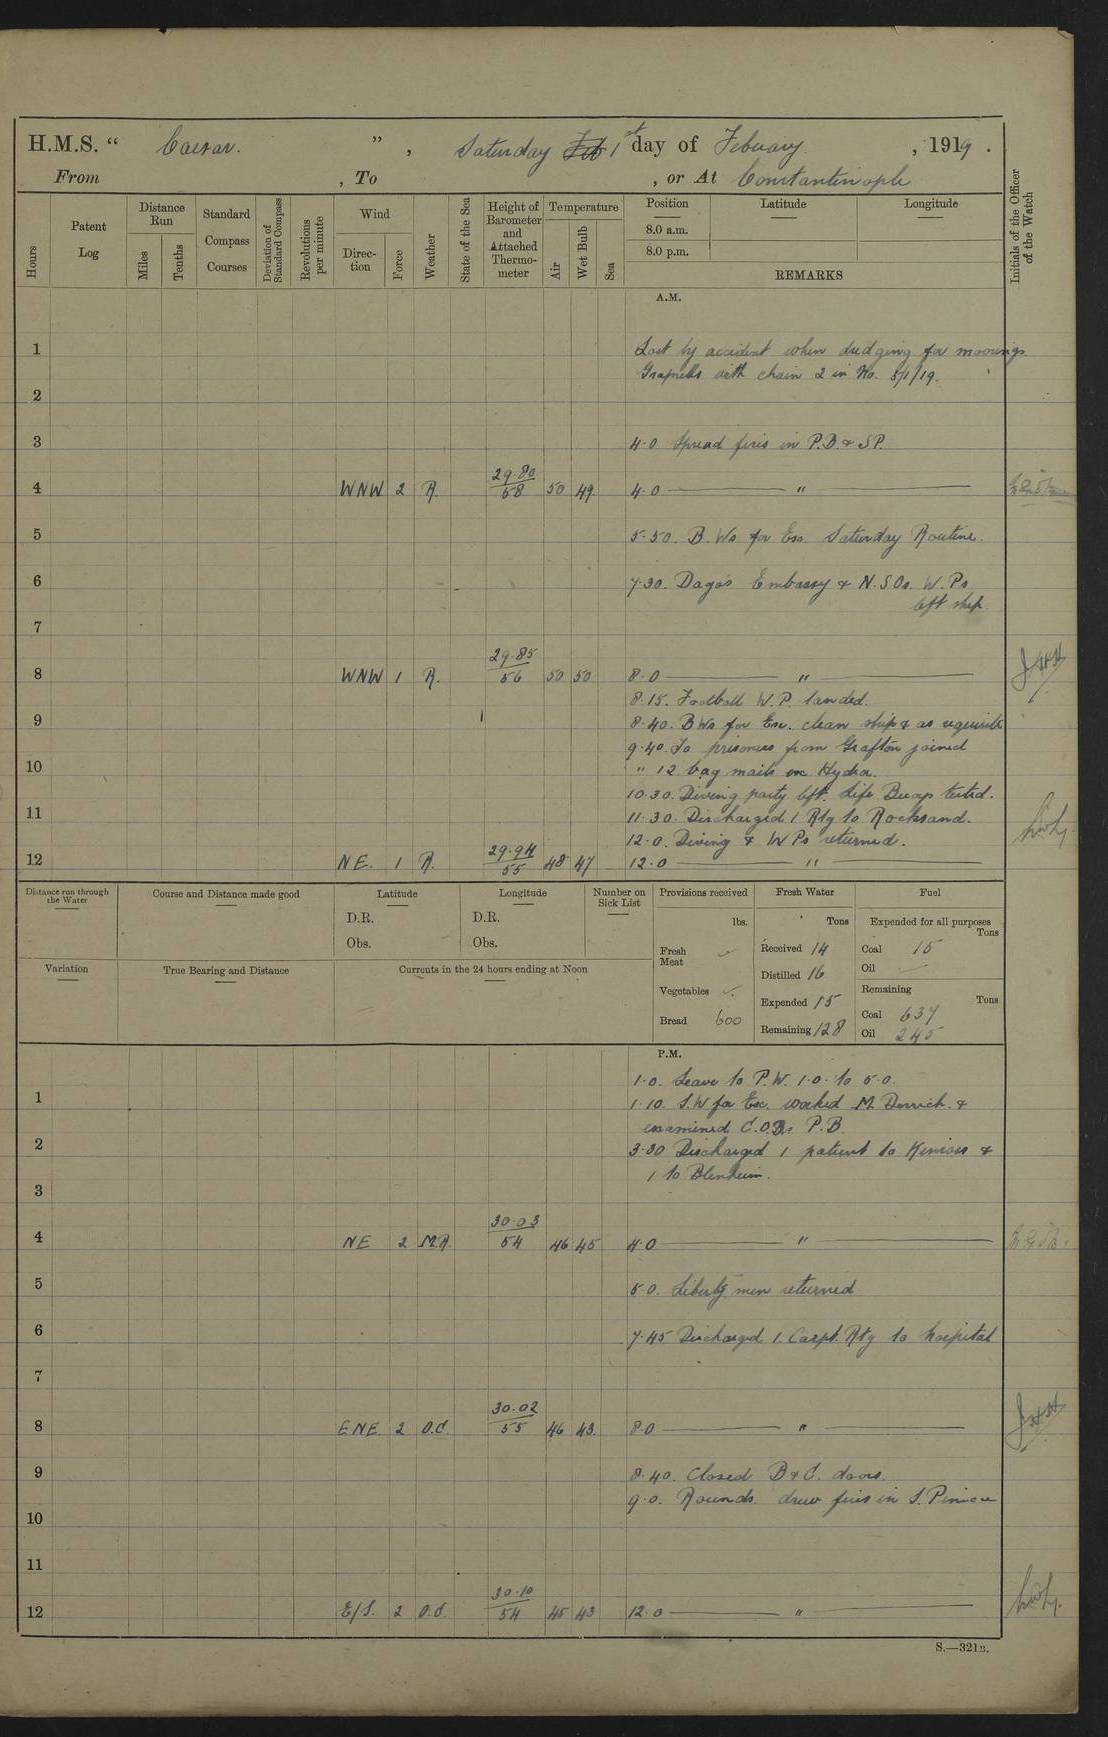 H.M.S. " Caesar. " , Saturday Feb 1st day of Febuary , 1919 .
From , To , or At Constantinople
Hours
Patent Log
Distance Run
Miles
Tenths
Standard Compass Courses
Deviation of Standard Compass
Revolutions per minute
Wind
Direction
Force
Weather
State of the Sea
Height of Barometer and Attached Thermometer
Temperature
Air
Wet Bulb
Sea
Position
8.0 a.m.
8.0 p.m.
Latitude
Longitude
REMARKS
Initials of the Officer of the Watch
A.M.
1 Lost by accident when dredging for moorings
Grapnells with chain 2 in No. 5/1/19.
2
3 4.0 Spread fires in P.B. & S.P.
4 WNW 2 R. 29.80 58 50 49 4.0 "
5 5.50. B. Ws for Exs. Saturday Routine.
6 7.30. Dagos Embassy & N.S.Os. W. Ps
left ship.
7
8 WNW 1 R. 29.85 56 50 50 8.0 "
8.15. Football W.P. landed.
9 8.40. BWs for Exs. clean ship & as requisite
9.40. prisoners from Grafton joined
10 " 12 bag mails ex Hydra.
10.30. Diving party left. Life Buoys tested.
11 11.30. Discharged 1 Rtg to Rocksand.
12.0. Diving & W Ps returned.
12 NE. 1 R. 29.94 55 48 47 12.0 "
Distance run through the Water
Course and Distance made good
Latitude
D.R.
Obs.
Longitude
D.R.
Obs.
Number on Sick List
Provisions received
lbs.
Fresh Meat
Vegetables
Bread 600
Fresh Water
Tons
Received 14
Distilled 16
Expended 15
Remaining 128
Fuel
Expended for all purposes
Tons
Coal 15
Oil
Remaining
Tons
Coal 637
Oil 245
Variation
True Bearing and Distance
Currents in the 24 hours ending at Noon
P.M.
1.0. Leave to P.W. 1.0. to 5.0.
1 1.10. S.W for Exs. worked M. Derrick. &
examined C.O.Bs P.B.
2 3.30 Discharged 1 patient to Kinross &
1 to Blenheim.
3
4 NE 2 M.R. 30.03 54 46 45 4.0 "
5 5.0. Liberty men returned
6 7.45 Discharged 1. Carpt. Rtg to hospital
7
8 ENE 2 O.C. 30.02 55 46 43 8.0 "
9 8.40. Closed B & C. doors.
9.0. Rounds. drew fires in S. Pinnace
10
11
12 E/S. 2 O.C. 30.10 54 45 43 12.0 "
S.—321B.